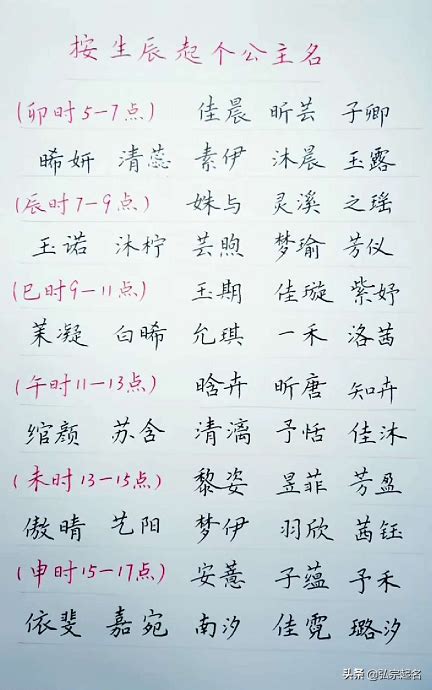 按生辰起个公主名
(卯时5-7点) 佳晨 昕芸 子卿
晞妍 清蕊 素伊 沐晨 玉露
(辰时7-9点) 姝与 灵溪 之瑶
玉诺 沐柠 芸煦 梦瑜 芳仪
(巳时9-11点) 玉期 佳璇 紫妤
茉凝 白晞 允琪 一禾 洛茜
(午时11-13点) 晗卉 昕唐 知卉
绾颜 苏含 清漓 予恬 佳沐
(未时13-15点) 黎姿 昱菲 芳盈
傲晴 艺阳 梦伊 羽欣 茜钰
(申时15-17点) 安薏 子蕴 予禾
依斐 嘉宛 南汐 佳霓 璐汐
头条 @弘宗起名